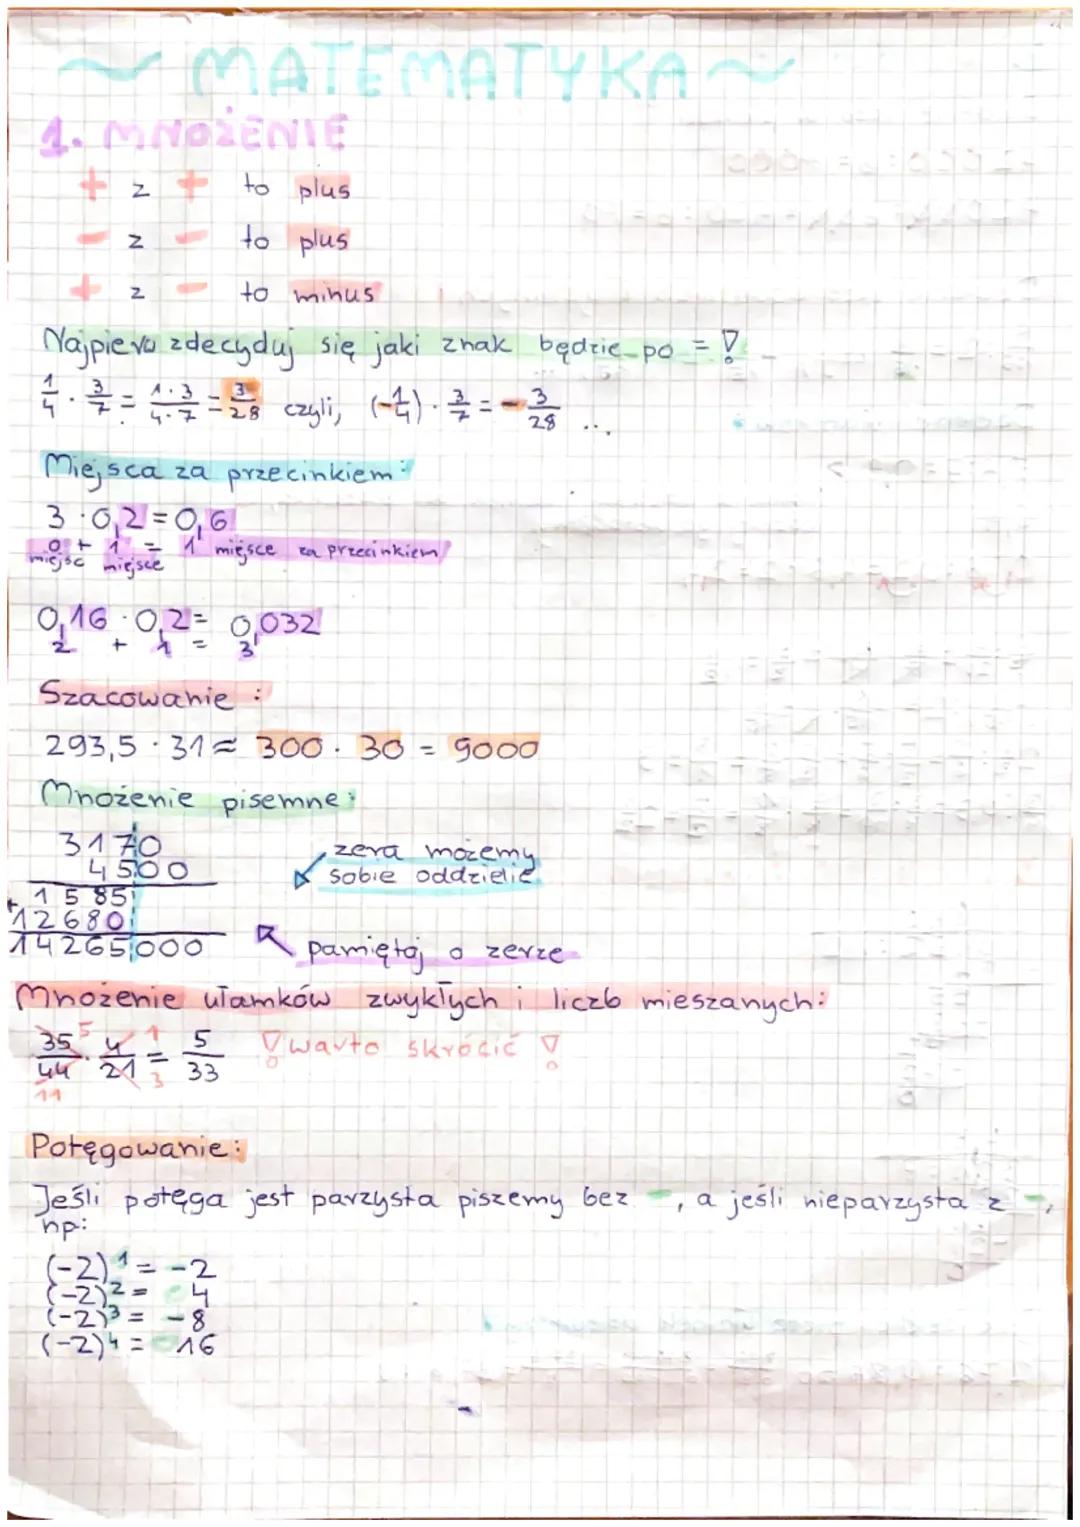 ~ MATEMATYKA ~
1. MNOŻENIE
+ z + to plus
- z - to plus
+ z - to minus
Najpierw zdecyduj się jaki znak będzie po = !
1/4 · 3/7 = 1·3/4·7 = 3/28 czyli, (-1/4) · 3/7 = - 3/28 ...
Miejsca za przecinkiem:
3 · 0,2 = 0,6
0 + 1 = 1 miejsce za przecinkiem
miejsc miejsce
0,16 · 0,2 = 0,032
2 + 1 = 3
Szacowanie :
293,5 · 31 ≈ 300 · 30 = 9000
Mnożenie pisemne:
3170
4500
zera możemy
sobie oddzielić
+ 1585
12680
14265000
pamiętaj o zerze
Mnożenie ułamków zwykłych i liczb mieszanych:
35/44 · 4/21 = 5/33
5 1
11 3
! warto skrócić !
Potęgowanie:
Jeśli potęga jest parzysta piszemy bez -, a jeśli nieparzysta z -,
np:
(-2)¹ = -2
(-2)² = 4
(-2)³ = -8
(-2)⁴ = 16